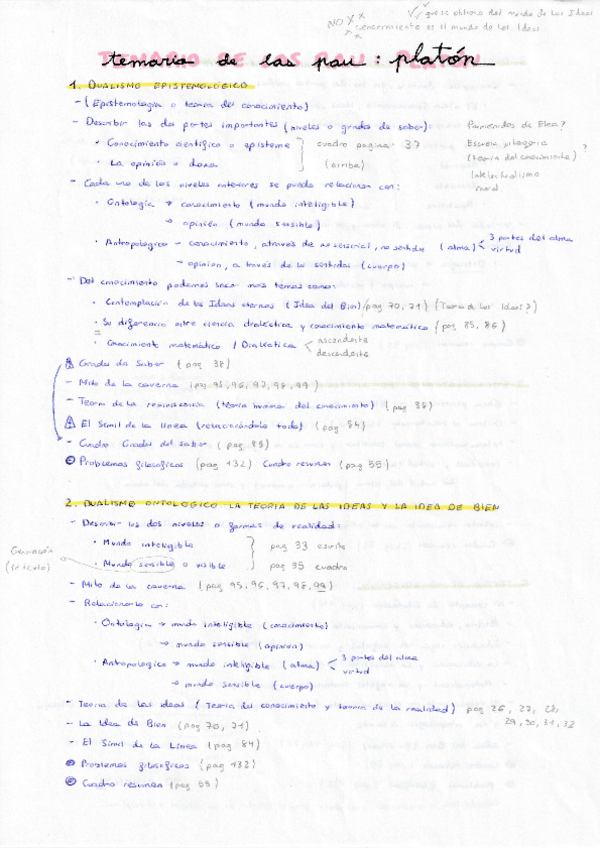 NO XX ✓✓ que se obtiene del mundo de las Ideas
conocimiento es el mundo de las Ideas
temario de las pau: platón
1. DUALISMO EPISTEMOLÓGICO
- (Epistemología o teoría del conocimiento)
- Describir las dos partes importantes (niveles o grados de saber): Parménides de Elea?
• Conocimiento científico o episteme } cuadro pagina: 37 Escuela pitagórica ?
• La opinión o doxa (arriba) (teoría del conocimiento)
Intelectualismo
moral
- Cada uno de los niveles anteriores se puede relacionar con:
• Ontología → conocimiento (mundo inteligible)
→ opinión (mundo sensible)
• Antropológico - conocimiento, a través de , no sentidos (alma) < 3 partes del alma
virtud
→ opinion, a través de los sentidos (cuerpo)
- Del conocimiento podemos sacar más temas como:
• Contemplación de las Ideas eternas (Idea del Bien) (pag 70, 71) (Teoría de las Ideas?)
• Su diferencia entre ciencia dialéctica y conocimiento matemático (pag 85, 86)
• Conocimiento matemático / Dialéctica < ascendente
descendente
Grados de Saber (pag 38)
- Mito de la caverna (pag 95, 96, 97, 98, 99)
- Teoría de la reminiscencia (teoría humana del conocimiento) (pag 38)
El Símil de la línea (relacionándolo todo) (pag 84)
- Cuadro Grados del saber (pag 85)
Problemas filosóficos (pag 132) Cuadro resumen (pag 55)
2. DUALISMO ONTOLÓGICO. LA TEORÍA DE LAS IDEAS Y LA IDEA DE BIEN
- Describir los dos niveles o formas de realidad:
• Mundo inteligible } pag 33 escrito
• Mundo sensible o visible pag 35 cuadro
(artículo)
- Mito de la caverna (pag 95, 96, 97, 98, 99)
- Relacionarlo con:
• Ontología → mundo inteligible (conocimiento)
→ mundo sensible (opinión)
• Antropológico → mundo inteligible (alma) < 3 partes del alma
virtud
→ mundo sensible (cuerpo)
- Teoría de las ideas (Teoría del conocimiento y teoría de la realidad) pag 26, 27, 28,
29, 30, 31, 32
- La Idea de Bien (pag 70, 71)
- El Símil de la Línea (pag 84)
Problemas filosóficos (pag 132)
Cuadro resumen (pag 55)